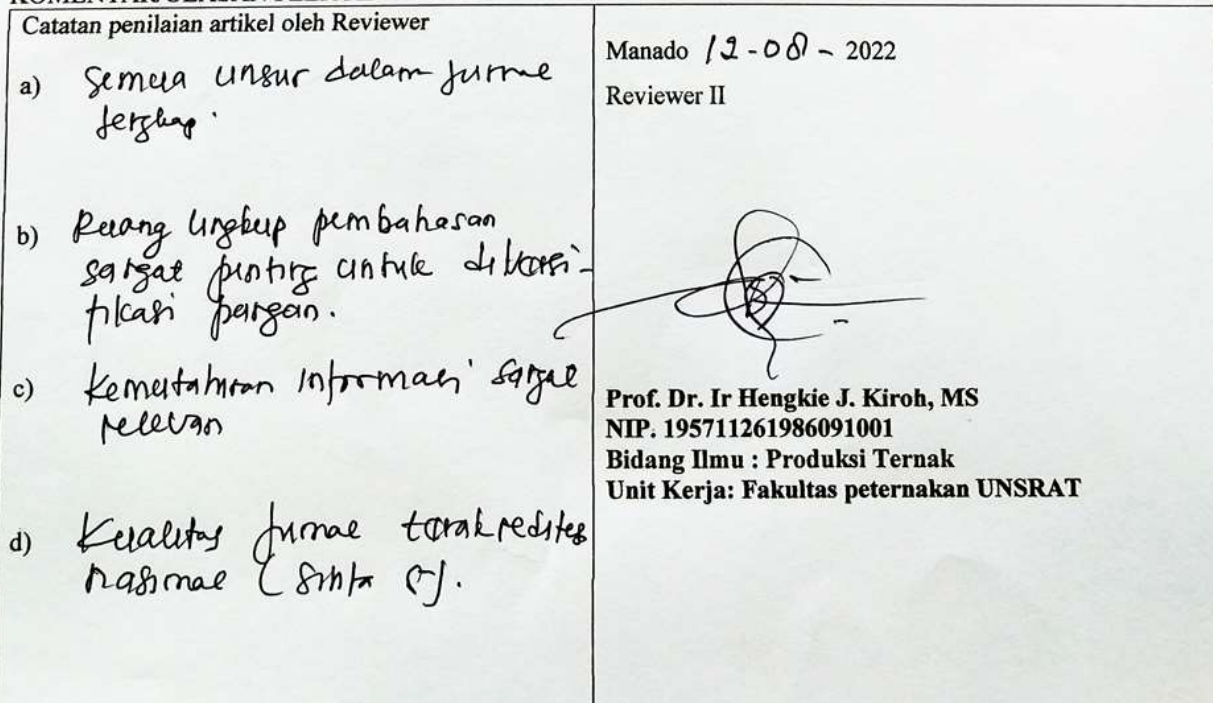 Catatan penilaian artikel oleh Reviewer
a) Semua unsur dalam jurnal
lengkap.
b) Ruang lingkup pembahasan
sangat penting untuk diversi-
fikasi pangan.
c) Kemutahiran informasi sangat
relevan
d) Kualitas jurnal terakreditasi
nasional (Sinta
Manado 12-08-2022
Reviewer II
Prof. Dr. Ir Hengkie J. Kiroh, MS
NIP. 195711261986091001
Bidang Ilmu : Produksi Ternak
Unit Kerja: Fakultas peternakan UNSRAT